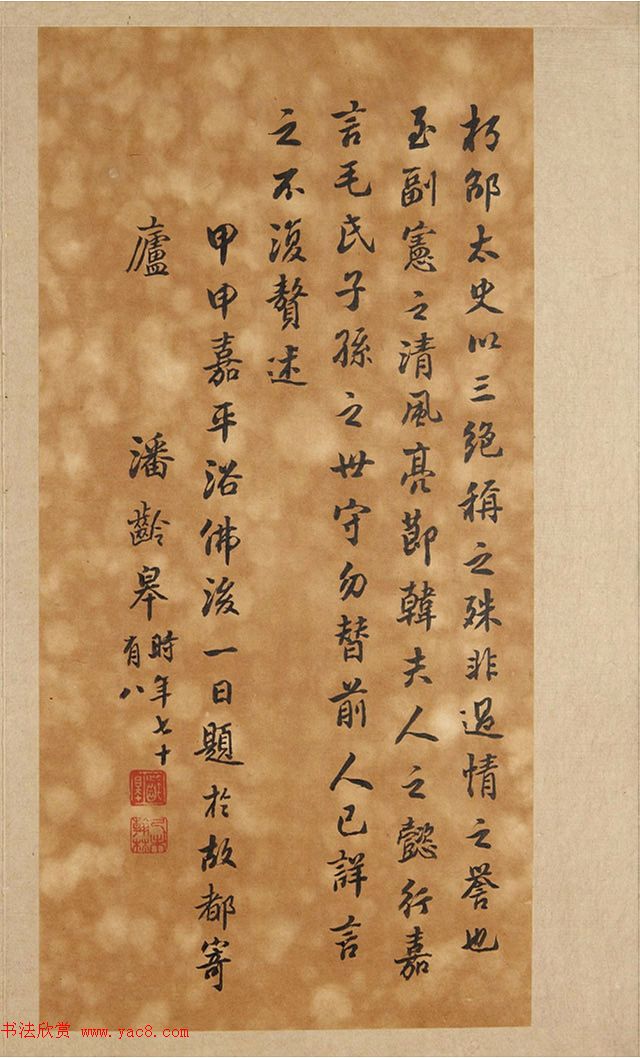 枌邹太史以三絕稱之殊非過情之譽也
至副憲之清風亮節韓夫人之懿行嘉
言毛氏子孫之世守勿替前人已詳言
之不復贅述
甲申嘉平浴佛後一日題於故都寄
廬
潘齡皋時年七十
有八
书法欣赏 www.yac8.com